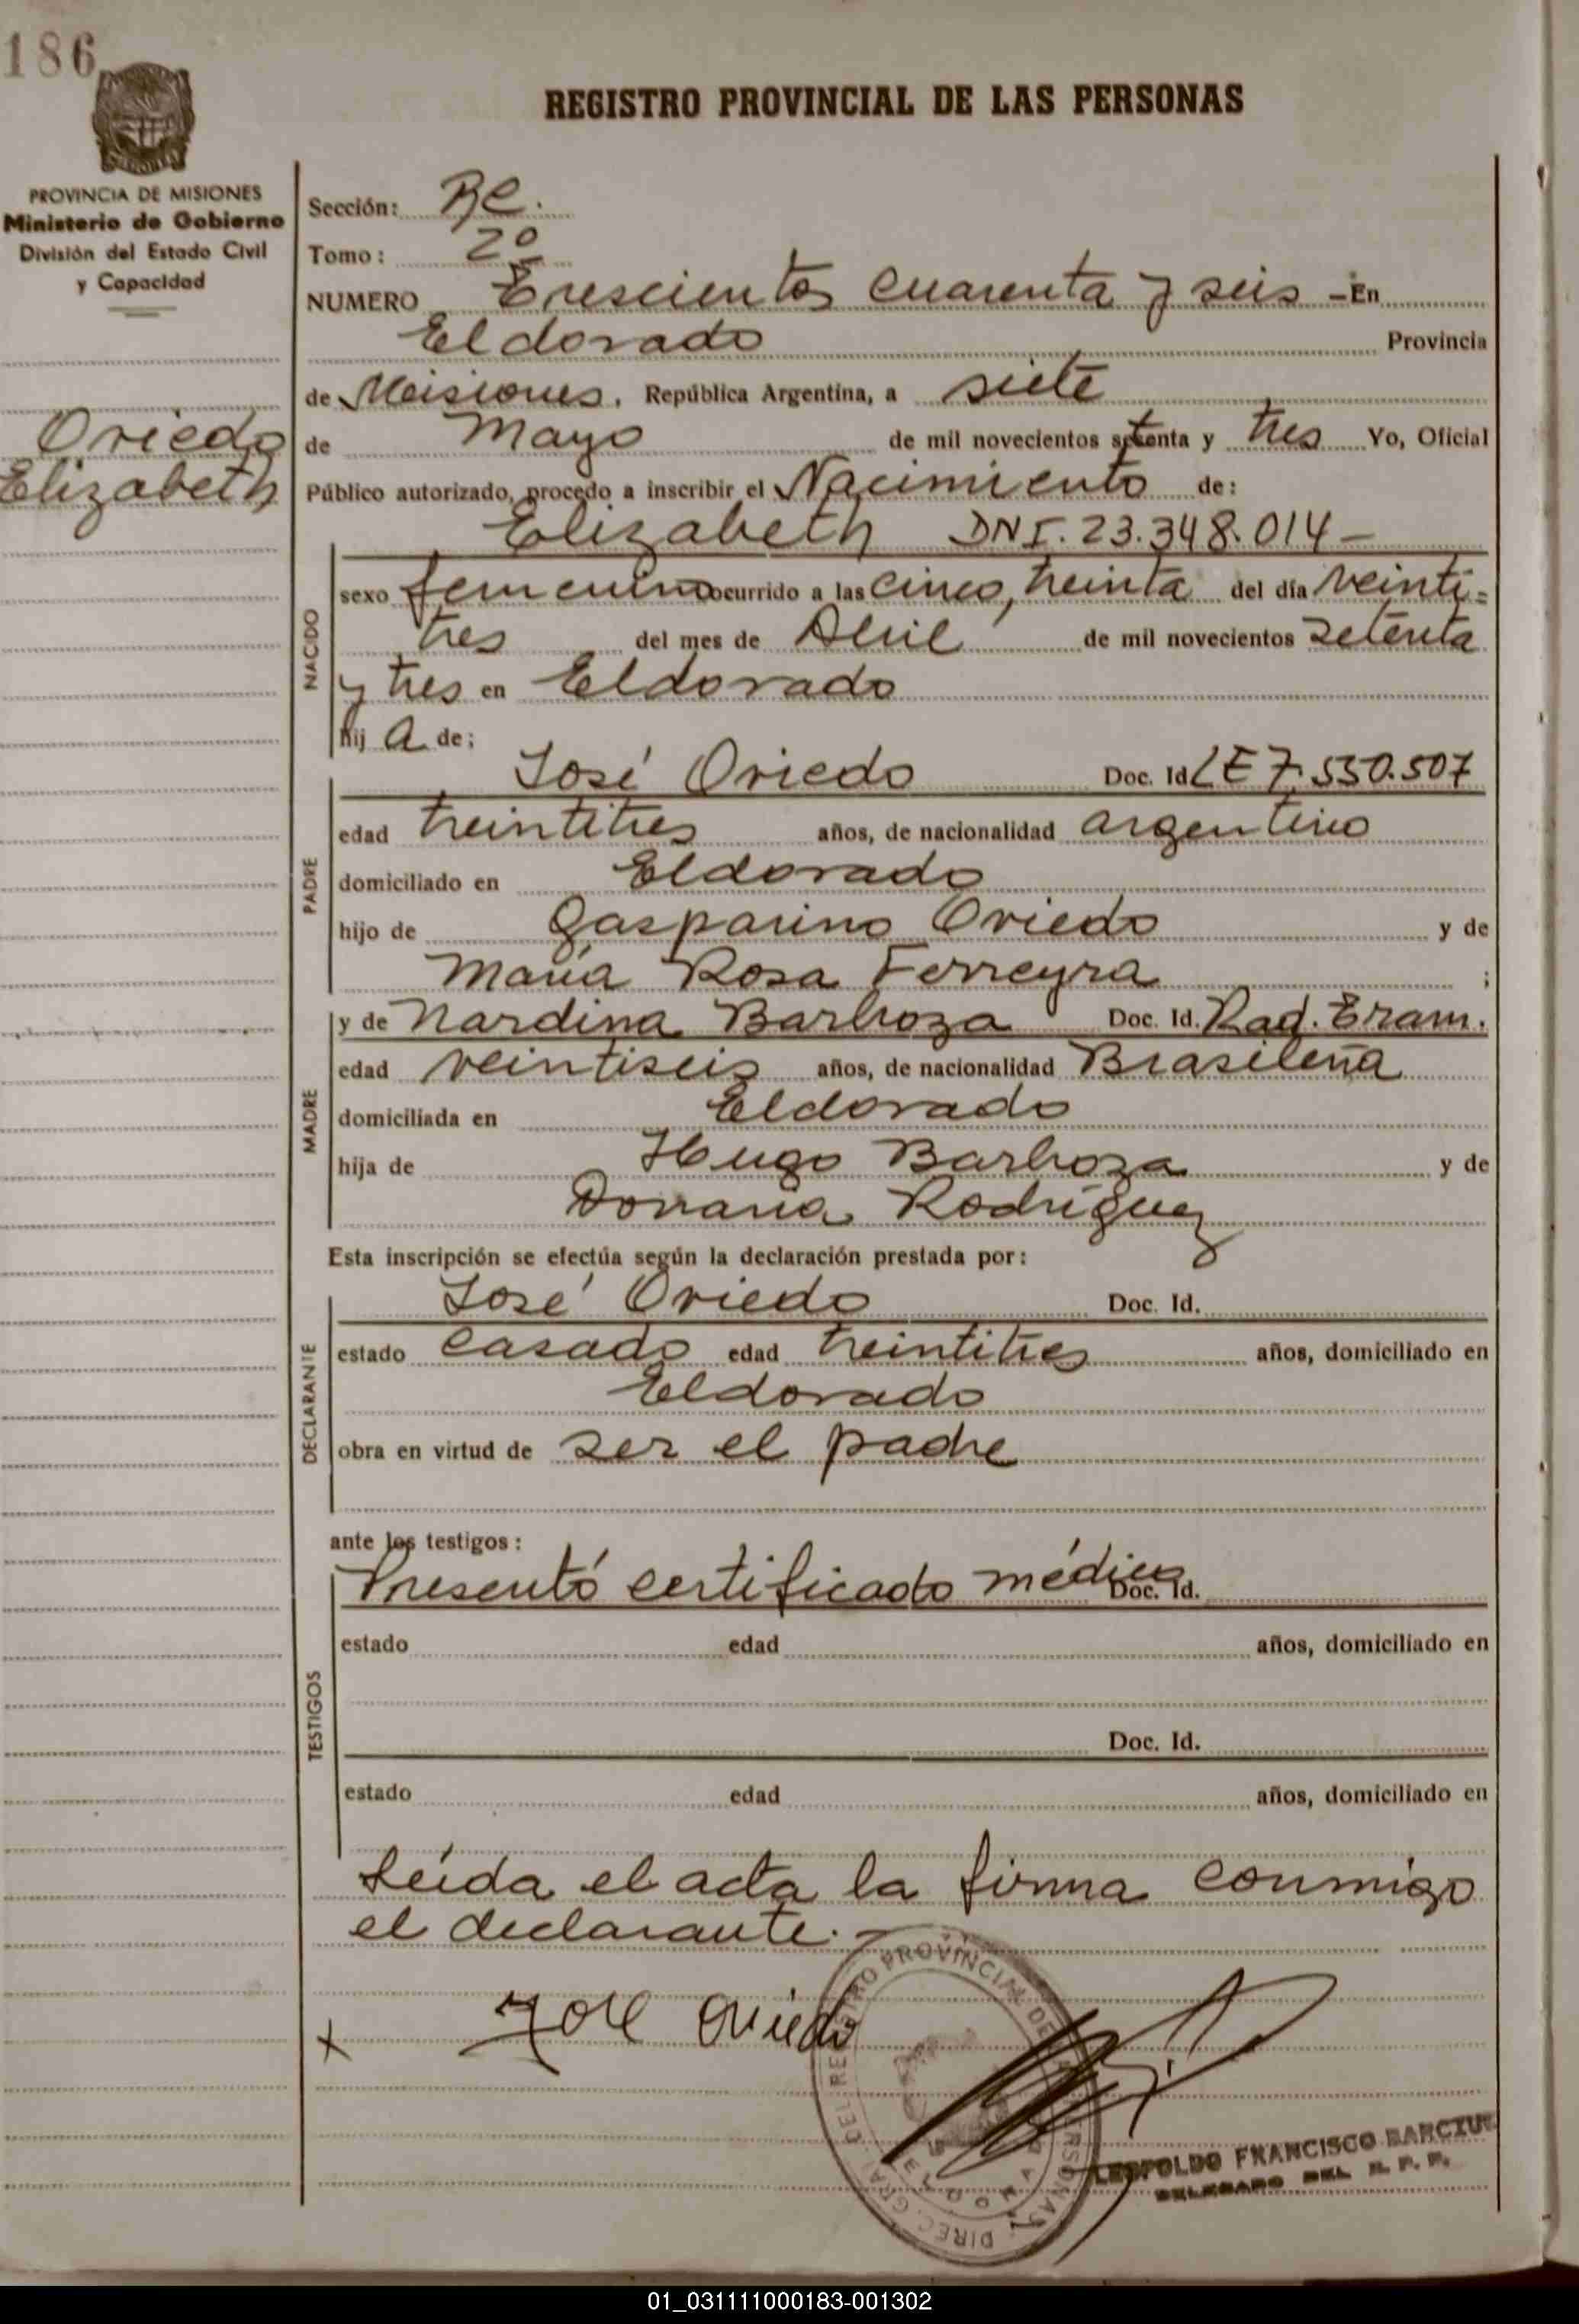 186
REGISTRO PROVINCIAL DE LAS PERSONAS
PROVINCIA DE MISIONES
Ministerio de Gobierno
División del Estado Civil
y Capacidad
Oviedo
Elizabeth
Sección: Bc.
Tomo: 2º
NUMERO Trescientos cuarenta y seis - En
Eldorado Provincia
de Misiones. República Argentina, a siete
de Mayo de mil novecientos setenta y tres Yo, Oficial
Público autorizado, procedo a inscribir el Nacimiento de:
Elizabeth DNI. 23.348.014 -
NACIDO
sexo femenino ocurrido a las cinco, treinta del día veinti-
tres del mes de Abril de mil novecientos setenta
y tres en Eldorado
hij a de;
PADRE
José Oviedo Doc. Id LE 7.550.507
edad treintitres años, de nacionalidad argentino
domiciliado en Eldorado
hijo de Gasparino Oviedo y de
María Rosa Ferreyra ;
MADRE
y de Nardina Barboza Doc. Id. Rad. Tram.
edad veintiseis años, de nacionalidad Brasileña
domiciliada en Eldorado
hija de Hugo Barboza y de
Rodríguez
Esta inscripción se efectúa según la declaración prestada por:
DECLARANTE
José Oviedo Doc. Id.
estado casado edad treintitres años, domiciliado en
Eldorado
obra en virtud de ser el padre
ante los testigos:
TESTIGOS
Presentó certificado médico Doc. Id.
estado edad años, domiciliado en
Doc. Id.
estado edad años, domiciliado en
Leída el acta la firma conmigo
el declarante. -
x José Oviedo
DIREC. GRAL DEL REGISTRO PROVINCIAL DE LAS PERSONAS
ELDORADO
LEOPOLDO FRANCISCO
DELEGADO DEL R. P. P.
01_031111000183-001302